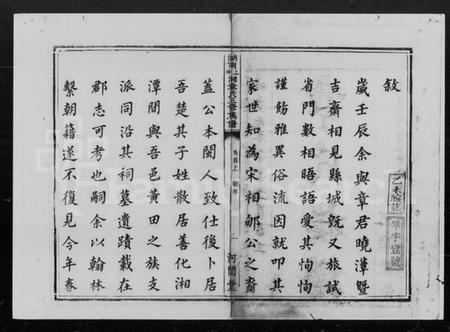 敘
歲壬辰余與章君曉潭暨
吉齋相見縣城旣又旅試
省門數相晤語愛其恂恂
謹飭雅異俗流因就叩其
家世知為宋相郇公之裔
卷首上 敘序 一 河間堂
蓋公本閩人致仕後卜居
吾楚其子姓散居善化湘
潭間與吾邑黃田之族支
派同沿其祠墓遺蹟載在
郡志可考也嗣余以翰林
繫朝籍遂不復見今年春